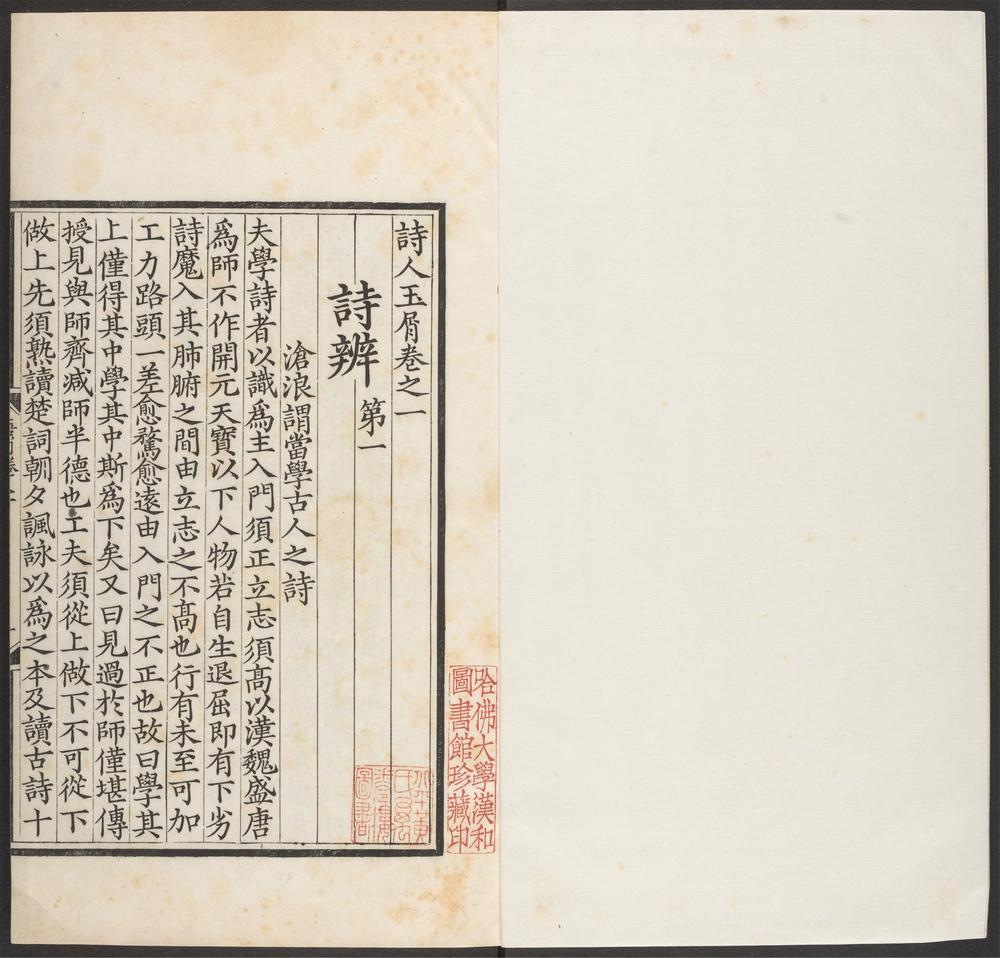 詩人玉屑卷之一
詩辨
第一
滄浪謂當學古人之詩
夫學詩者以識爲主入門須正立志須髙以漢魏盛唐
爲師不作開元天寶以下人物若自生退屈即有下劣
詩魔入其肺腑之間由立志之不髙也行有未至可加
工力路頭一差愈騖愈遠由入門之不正也故曰學其
上僅得其中學其中斯爲下矣又曰見過於師僅堪傳
授見與師齊减師半德也工夫須從上做下不可從下
做上先須熟讀楚詞朝夕諷詠以爲之本及讀古詩十
哈佛大學漢和
圖書館珍藏印